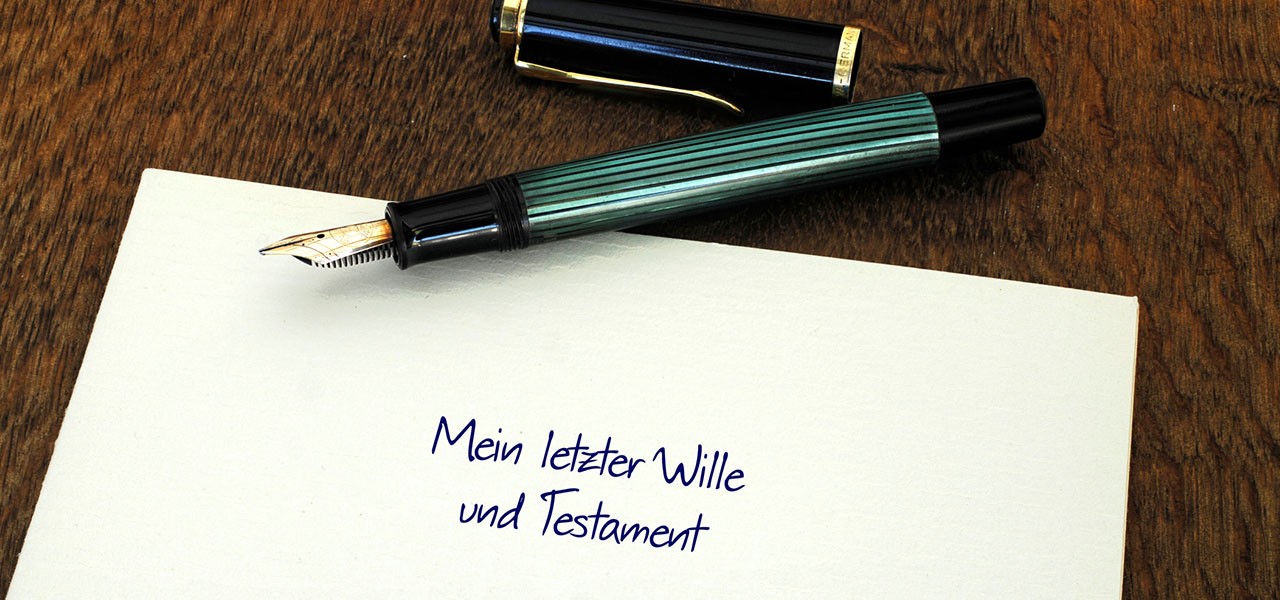 Mein letzter Wille
und Testament